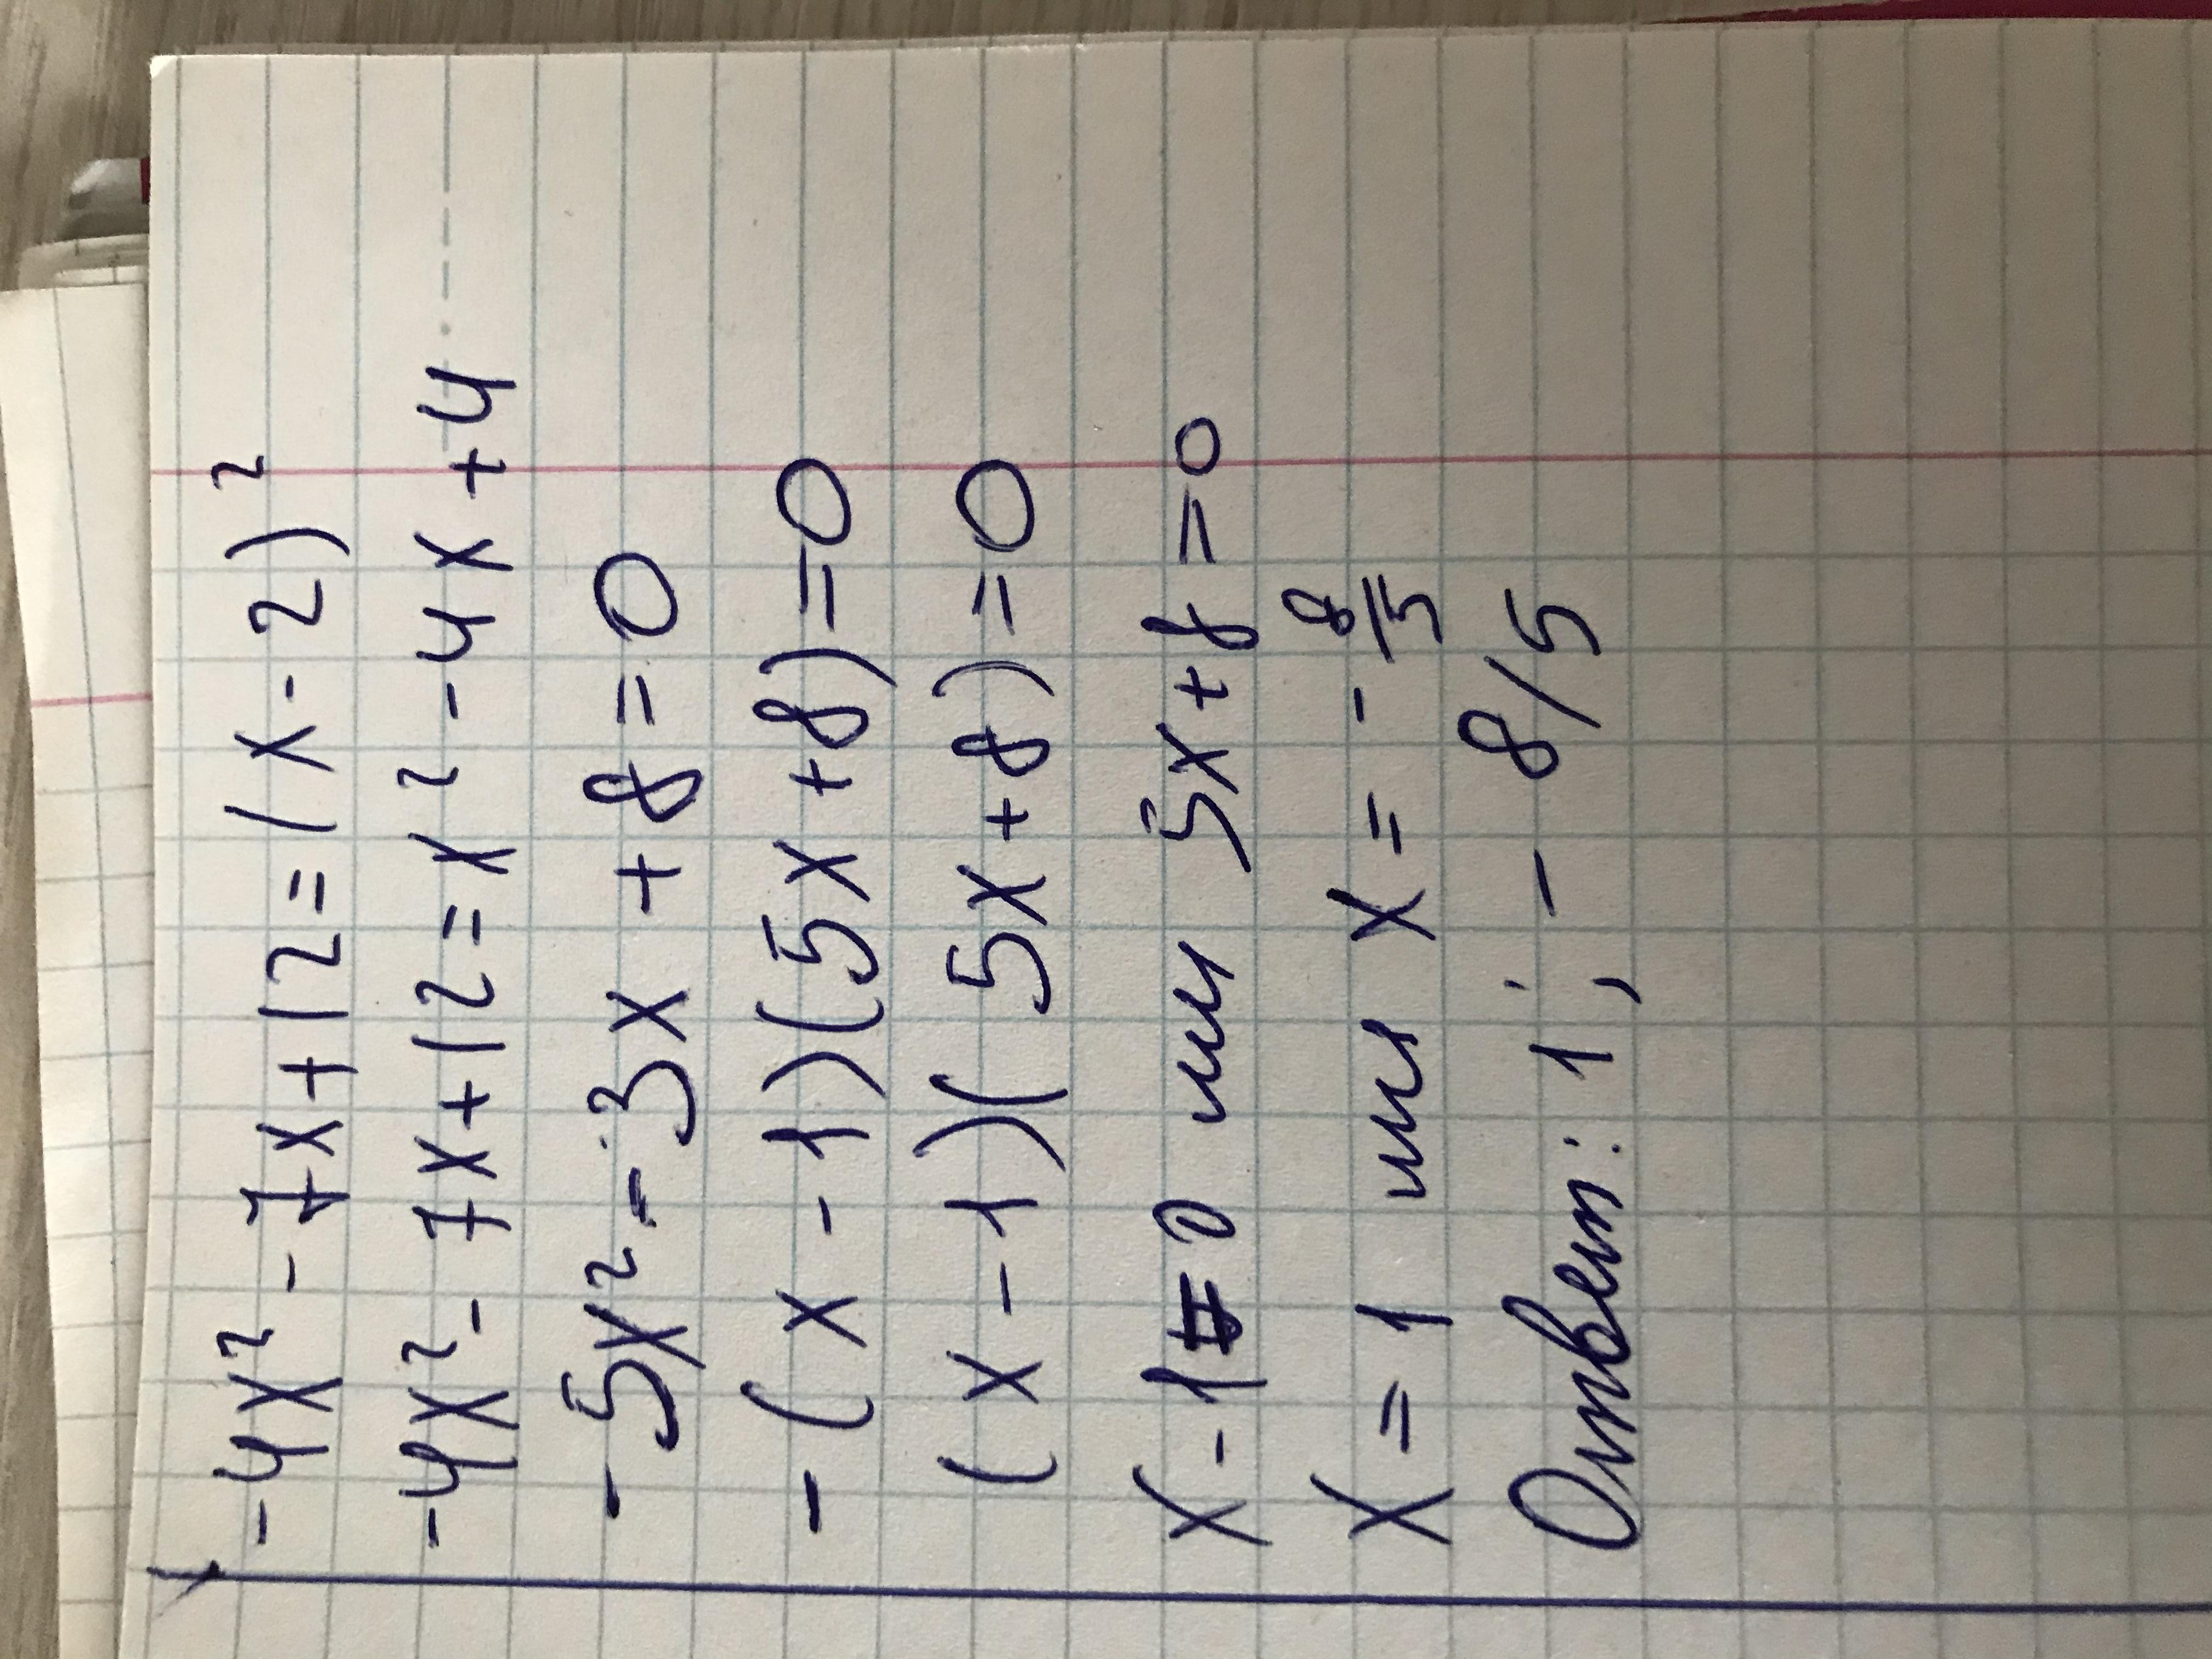 -4x² - 7x + 12 = (x - 2)²
-4x² - 7x + 12 = x² - 4x + 4
-5x² - 3x + 8 = 0
-(x - 1)(5x + 8) = 0
(x - 1)(5x + 8) = 0
x - 1 = 0 или 5x + 8 = 0
x = 1 или x = -8/5
Ответ: 1; -8/5